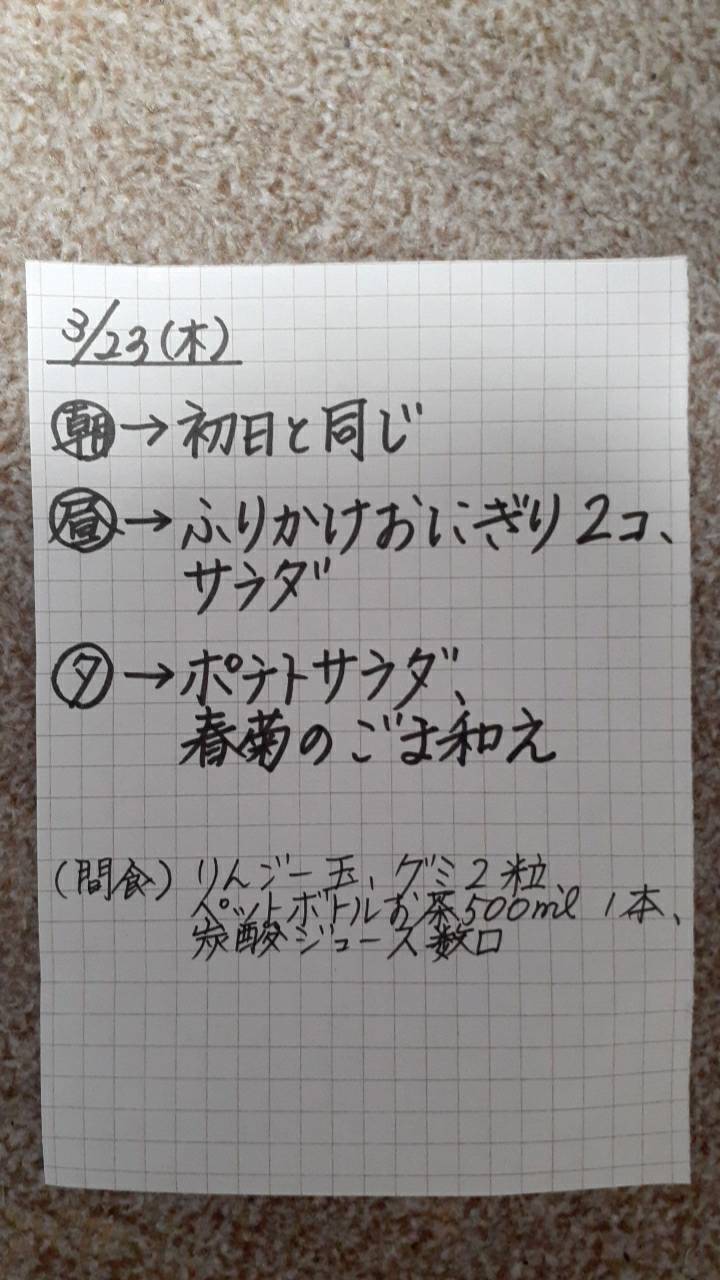 3/23(木)
朝→初日と同じ
昼→ふりかけおにぎり2コ、
サラダ
夕→ポテトサラダ、
春菊のごま和え
(間食)りんご一玉、グミ2粒、
ペットボトルお茶500ml 1本、
炭酸ジュース数口